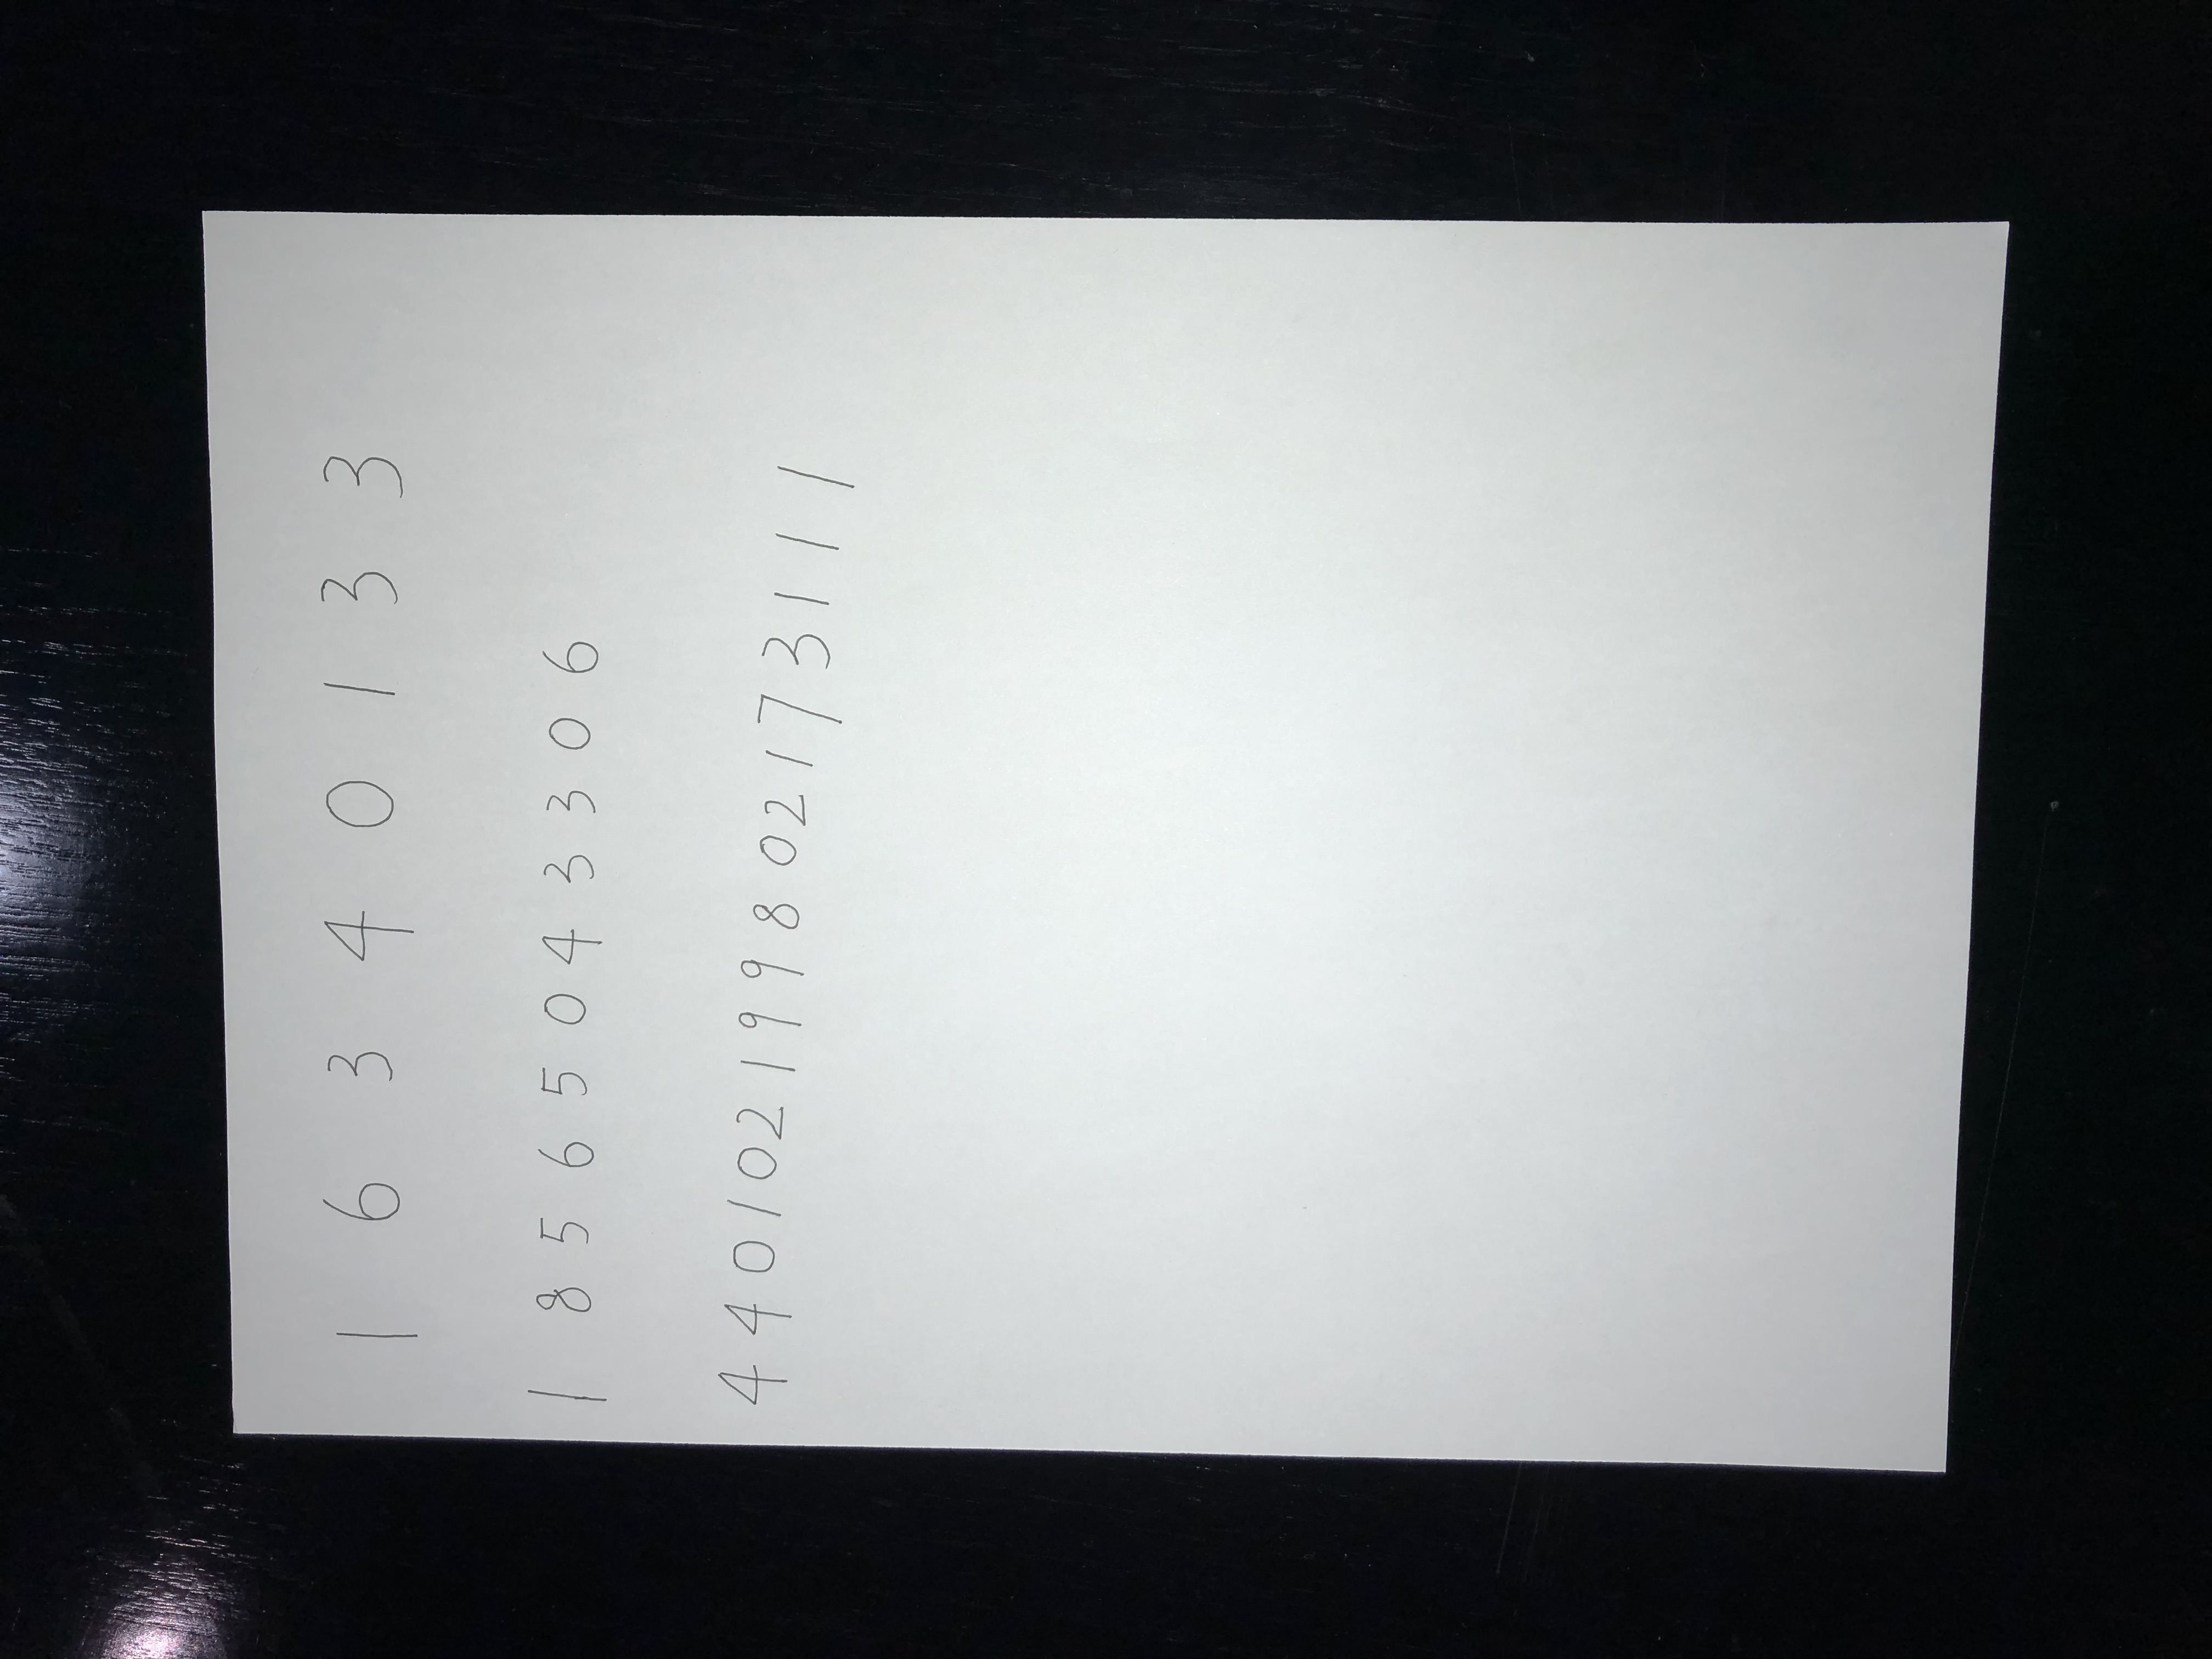 1 6 3 4 0 1 3 3
1 8 5 6 5 0 4 3 3 0 6
4 4 0 1 0 2 1 9 9 8 0 2 1 7 3 1 1 1